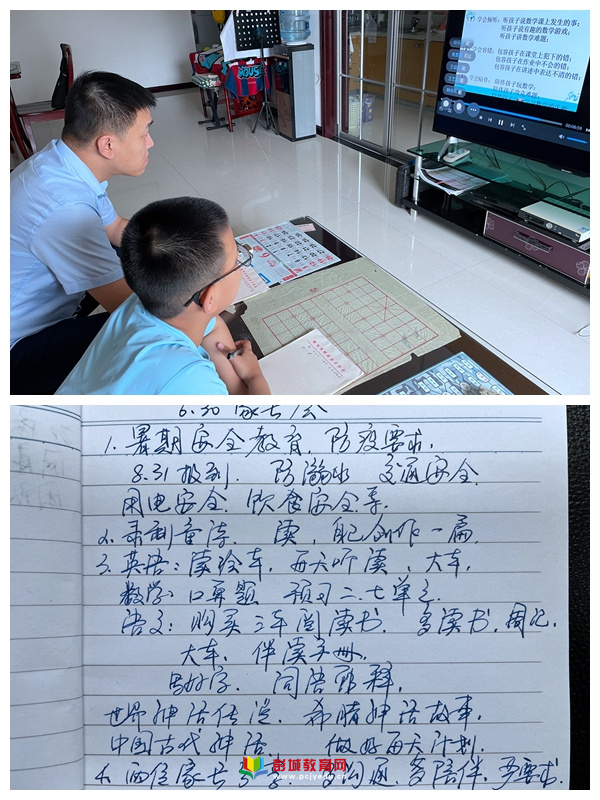 学会倾听：听孩子说数学课上发生的事；
听孩子说有趣的数学游戏；
听孩子讲数学难题；
学会容错：包容孩子在课堂上犯下的错；
包容孩子在作业中不会的错；
包容孩子在讲述中表达不清的错；
学会陪伴：陪伴孩子玩数学；
6.30 家长会
1. 暑期安全教育，防疫要求，
8.31 报到. 防溺水 交通安全
用电安全. 饮食安全等.
2. 录制童谣. 读，自己创作一篇.
3. 英语：读绘本，每天听读，大本，
数学：口算题 预习二、七单元.
语文：购买三年阅读书. 多读书，周记.
大本，伴读手册.
写好字. 词语解释.
世界神话传说. 希腊神话故事.
中国古代神话. 做好每天计划.
4. 两位家长分享：多沟通，多陪伴，严要求.
彭城教育网
www.pcjyedu.cn